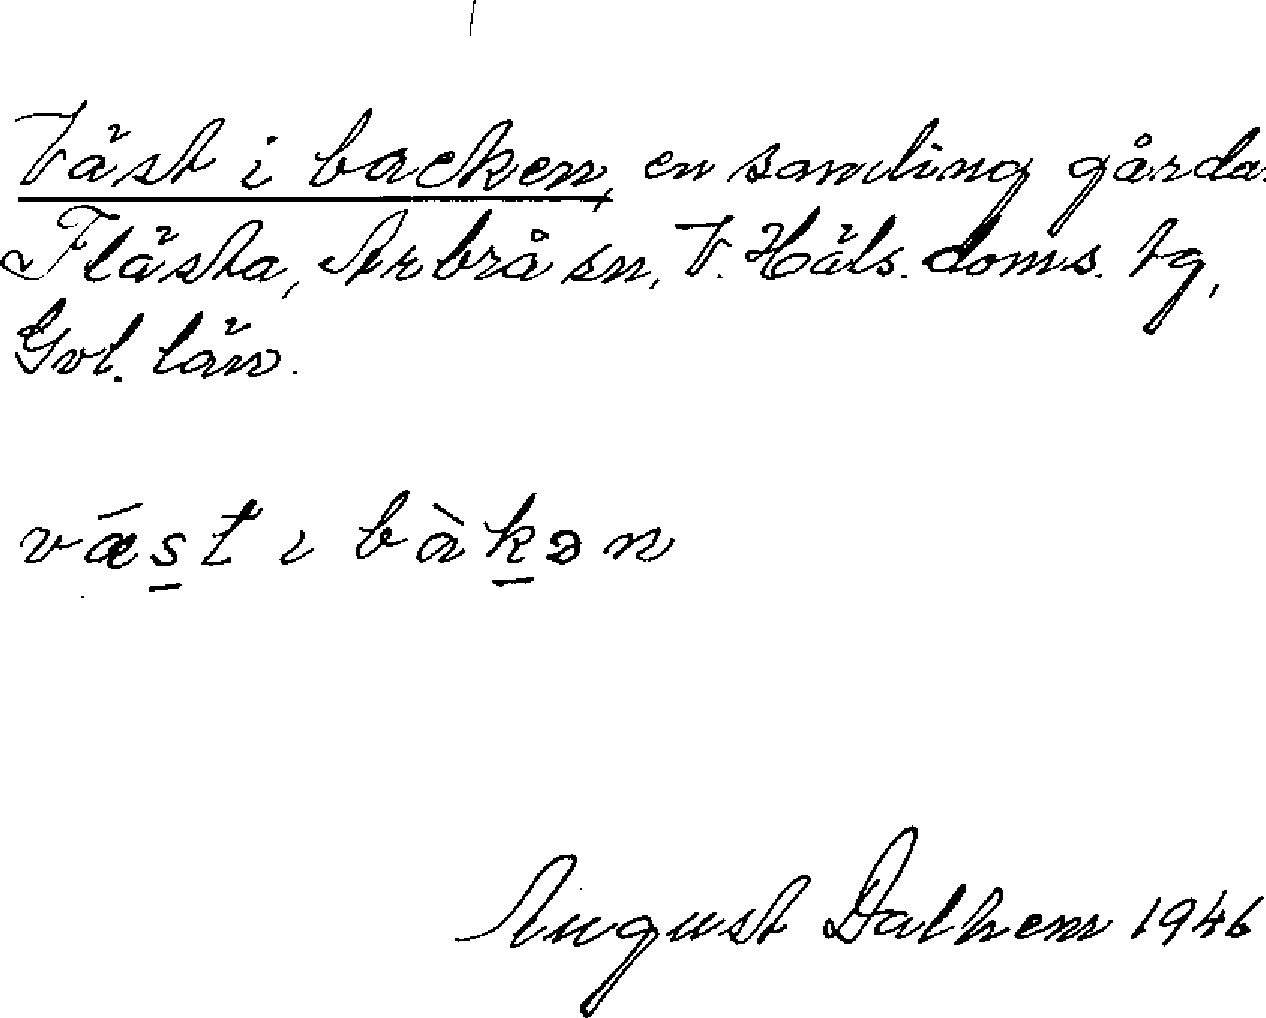 Väst i backen, en samling gårdar
Flästa, Arbrå sn, V. Häls. doms. tg,
Gvl. län.
vǽst ı bàkən
August Dalhem 1946